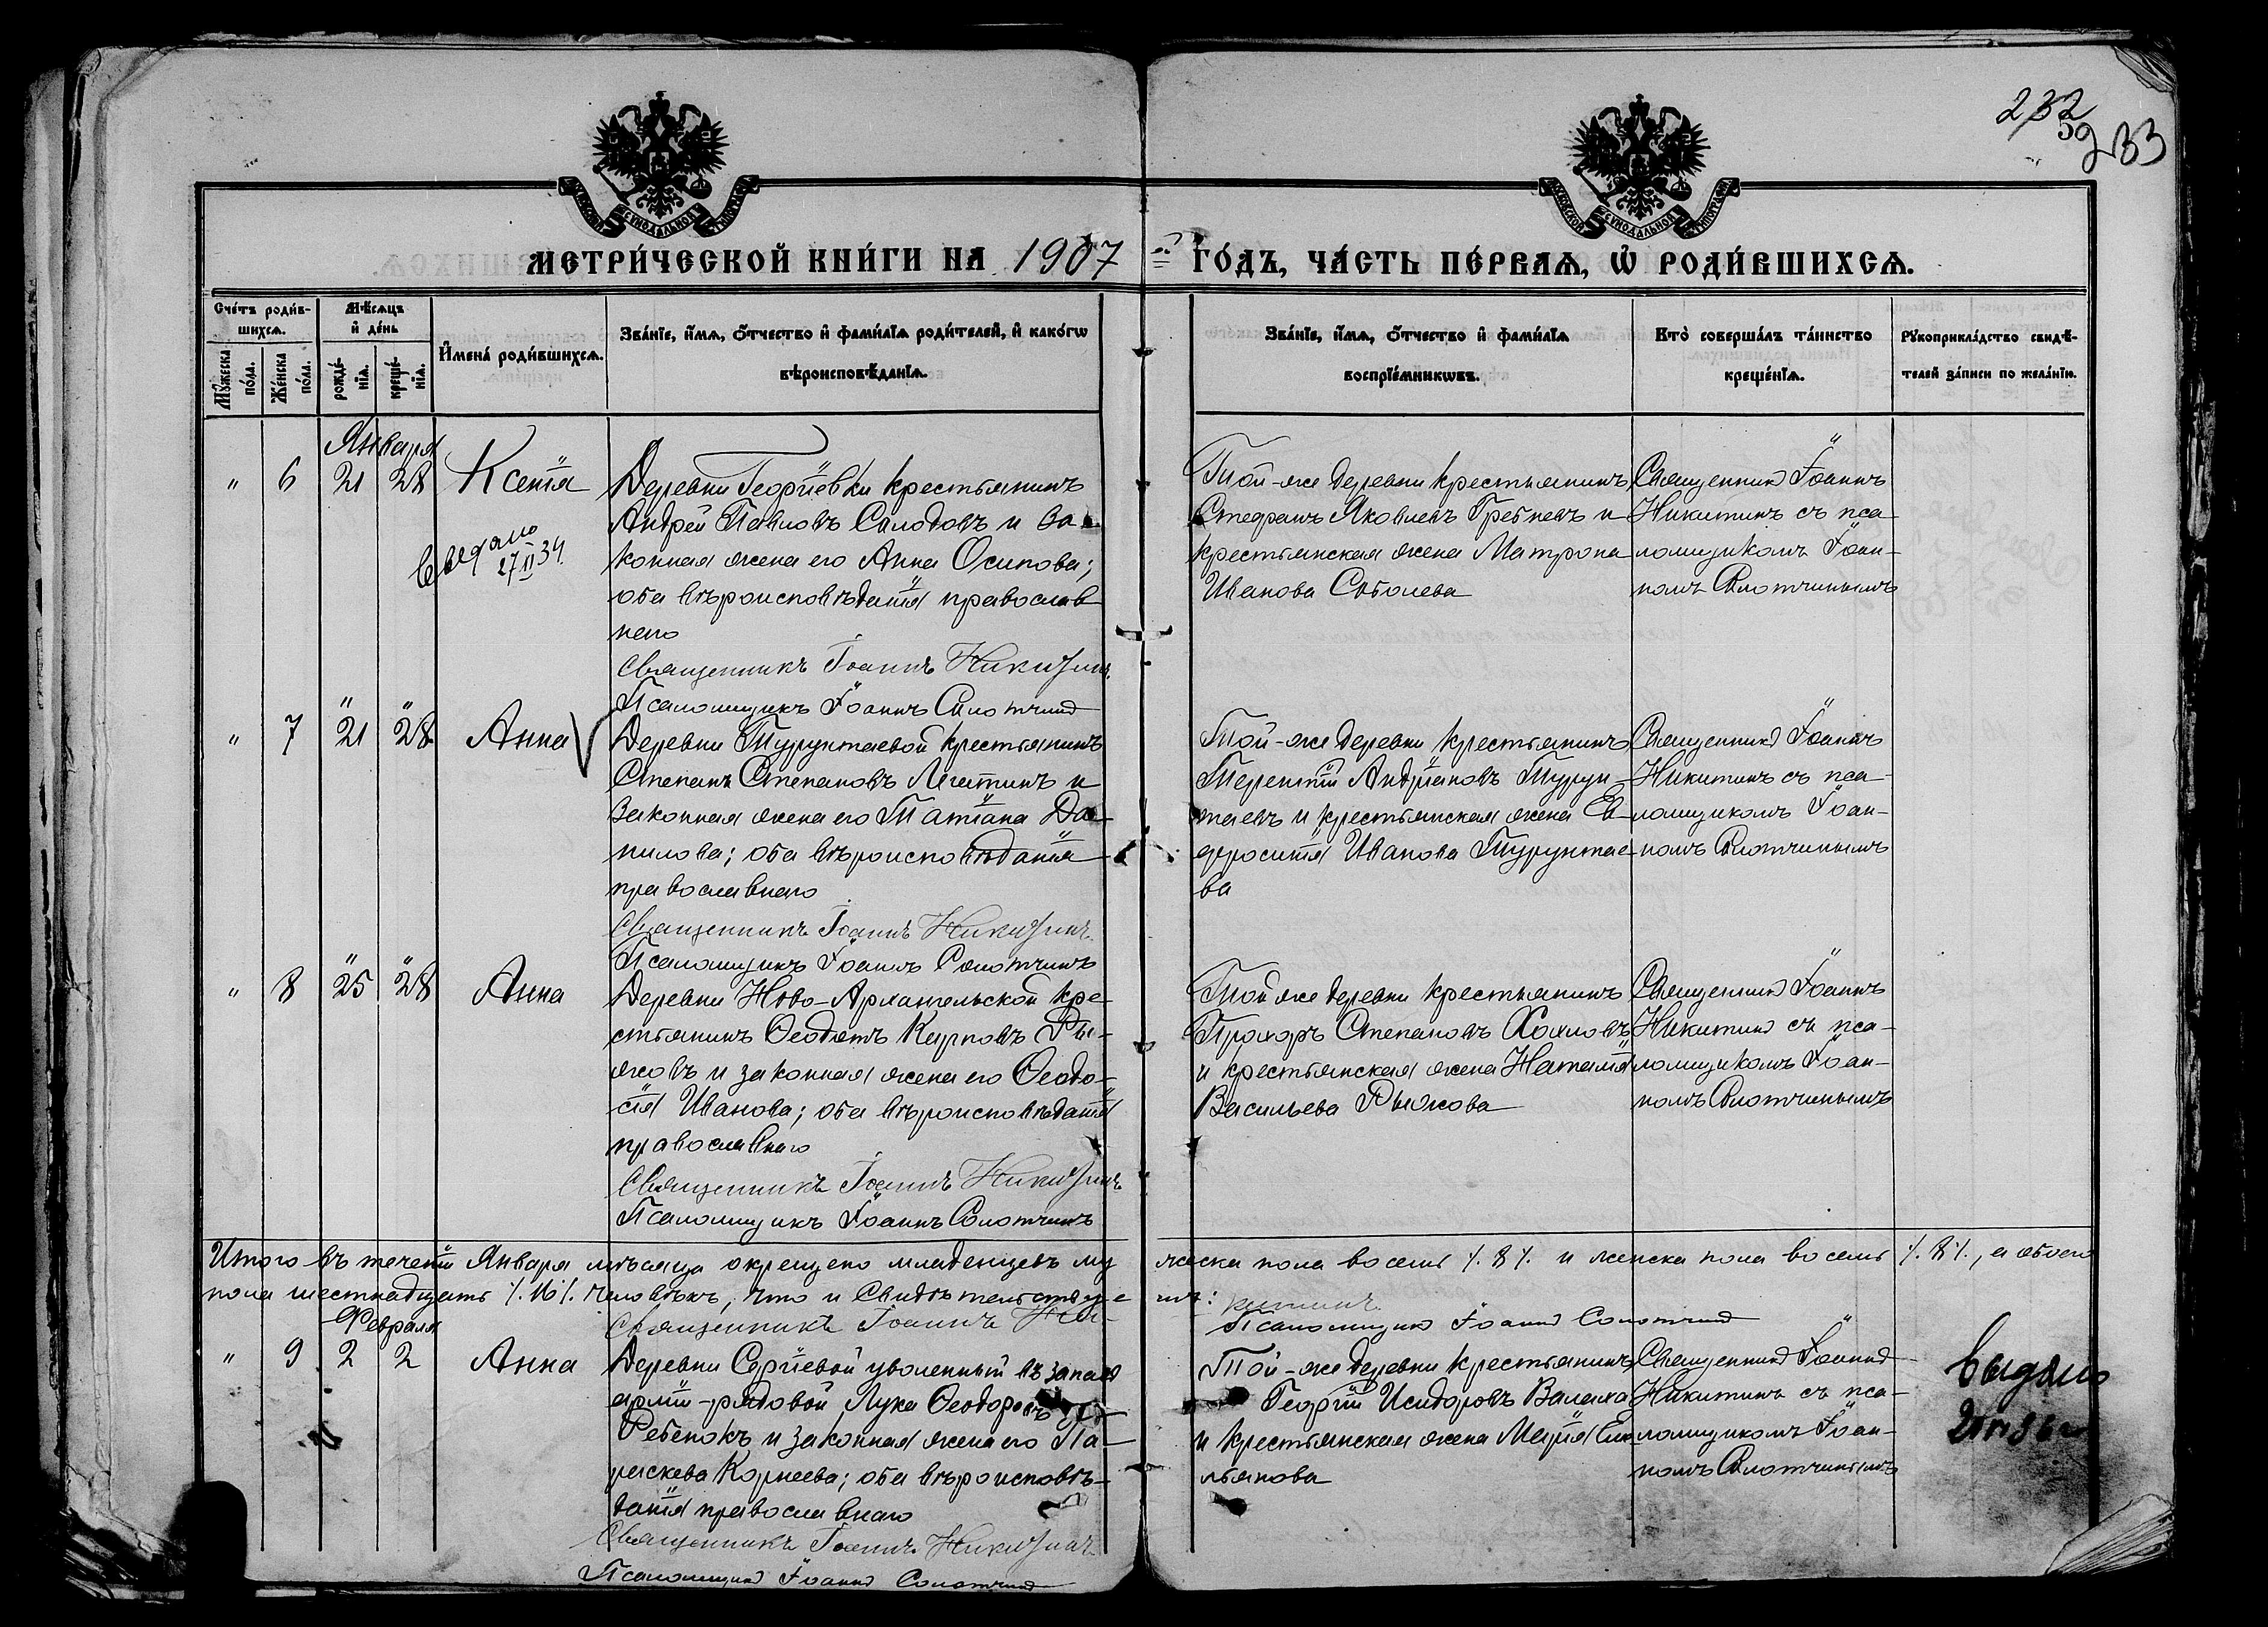 232
59
233
МЕТРИ́ЧЕСКОЙ КНИ́ГИ НА 1907 ГО́ДЪ, ЧА́СТЬ ПЕ́РВАѦ, Ѡ҆ РОДИ́ВШИХСѦ.
Сче́тъ роди́в-
шихсѧ.
Мꙋ́жеска по́ла.
Же́нска по́ла.
Мѣ́сѧцъ и҆ де́нь
рожде́-нїѧ.
креще́-нїѧ.
И҆мена̀ роди́вшихсѧ.
Зва́нїе, и҆́мѧ, ѻ҆́тчество и҆ фами́лїѧ роди́телей, и҆ како́гѡ
вѣроисповѣ́данїѧ.
Зва́нїе, и҆́мѧ, ѻ҆́тчество и҆ фами́лїѧ
воспрїе́мникѡвъ.
Кто̀ соверша́лъ та́инство
креще́нїѧ.
Рꙋкоприкла́дство свидѣ́-
телей за́писи по жела́нїю.
Января
" 6 21 28 Ксенія
Выдано
27 II 34
Деревни Георгіевки крестьянинъ
Андрей Павловъ Солодовъ и за-
конная жена его Анна Осипова;
оба вѣроисповѣданія православ-
наго
Священникъ Іоаннъ Никитинъ.
Псаломщикъ Іоаннъ Солотчинъ
Той-же деревни крестьянинъ
Стефанъ Яковлевъ Гребневъ и
крестьянская жена Матрона
Иванова Соболева
Священникъ Іоаннъ
Никитинъ съ пса-
ломщикомъ Іоан-
номъ Солотчинымъ
" 7 21 28 Анна
Деревни Турунтаевой крестьянинъ
Степанъ Степановъ Лямтинъ и
законная жена его Татіана Да-
нилова; оба вѣроисповѣданія
православнаго
Священникъ Іоаннъ Никитинъ.
Псаломщикъ Іоаннъ Солотчинъ
Той-же деревни крестьянинъ
Терентій Андріановъ Турун-
таевъ и крестьянская жена Ев-
фросинія Иванова Турунтае-
ва
Священникъ Іоаннъ
Никитинъ съ пса-
ломщикомъ Іоан-
номъ Солотчинымъ
" 8 25 28 Анна
Деревни Ново-Архангельской кре-
стьянинъ Ѳеодотъ Карповъ Ры-
жовъ и законная жена его Ѳеодо-
сія Иванова; оба вѣроисповѣданія
православнаго
Священникъ Іоаннъ Никитинъ
Псаломщикъ Іоаннъ Солотчинъ
Той же деревни крестьянинъ
Прохоръ Степановъ Хохловъ
и крестьянская жена Наталія
Васильева Рыжова
Священникъ Іоаннъ
Никитинъ съ пса-
ломщикомъ Іоан-
номъ Солотчинымъ
Итого въ теченіи Января мѣсяца окрещено младенцевъ му жеска пола восемь /. 8 /. и женска пола восемь /. 8 /., а обоего
пола шестнадцать /. 16 /. человѣкъ, что и свидѣтельствуе мъ:
Священникъ Іоаннъ Ни- китинъ.
Псаломщикъ Іоаннъ Солотчинъ
Февраля
" 9 2 2 Анна
Деревни Сергіевой уволенный въ запасъ
арміи-рядовой Лука Ѳеодоровъ
Ребенокъ и законная жена его Па-
раскева Корнеева; оба вѣроисповѣ-
данія православнаго
Священникъ Іоаннъ Никитинъ
Псаломщикъ Іоаннъ Солотчинъ
Той-же деревни крестьянинъ
Георгій Исидоровъ
и крестьянская жена Марія Еме-
льянова
Священникъ Іоаннъ
Никитинъ съ пса-
ломщикомъ Іоан-
номъ Солотчинымъ
Выдано